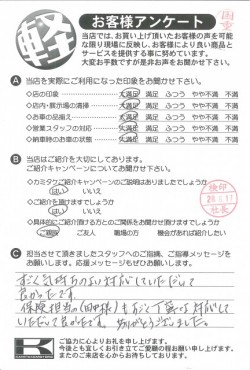 国産
軽
お客様アンケート
当店では、お買い上げ頂いたお客様の声を可能
な限り現場に反映し、お客様により良い商品と
サービスを提供する事に努めています。
大変お手数ですが是非お声をお聞かせ下さい。
A 当店を実際にご利用になった印象をお聞かせ下さい。
◇店の印象 大満足 満足 ふつう やや不満 不満
◇店内・展示場の清掃 大満足 満足 ふつう やや不満 不満
◇お車の品揃え 大満足 満足 ふつう やや不満 不満
◇営業スタッフの対応 大満足 満足 ふつう やや不満 不満
◇納車時のお車の状態 大満足 満足 ふつう やや不満 不満
B 当店はご紹介を大切にしております。
ご紹介キャンペーンについてお聞かせ下さい。
◇カミタケご紹介キャンペーンのご説明はありましたでしょうか
はい いいえ
◇ご紹介を頂けますでしょうか
はい いいえ
◇具体的にご紹介頂ける方とのご関係をお聞かせ頂けますでしょうか
ご親族 ご友人 職場の方 機会があれば紹介したい
検印
社長
C 担当させて頂きましたスタッフへのご指摘、ご指導メッセージを
お願いします。応援メッセージもぜひお願いします。
すごく気持ちのよい対応していただいて
良かったです。
保険担当の(田中様)もすごく丁寧な対応して
いただいて良かったです。ありがとうございました。
K
ご協力に心よりお礼を申し上げます。
今後とも宜しくお引き立てご愛顧の程お願い申し上げます。
またのご来店を心からお待ちしております。